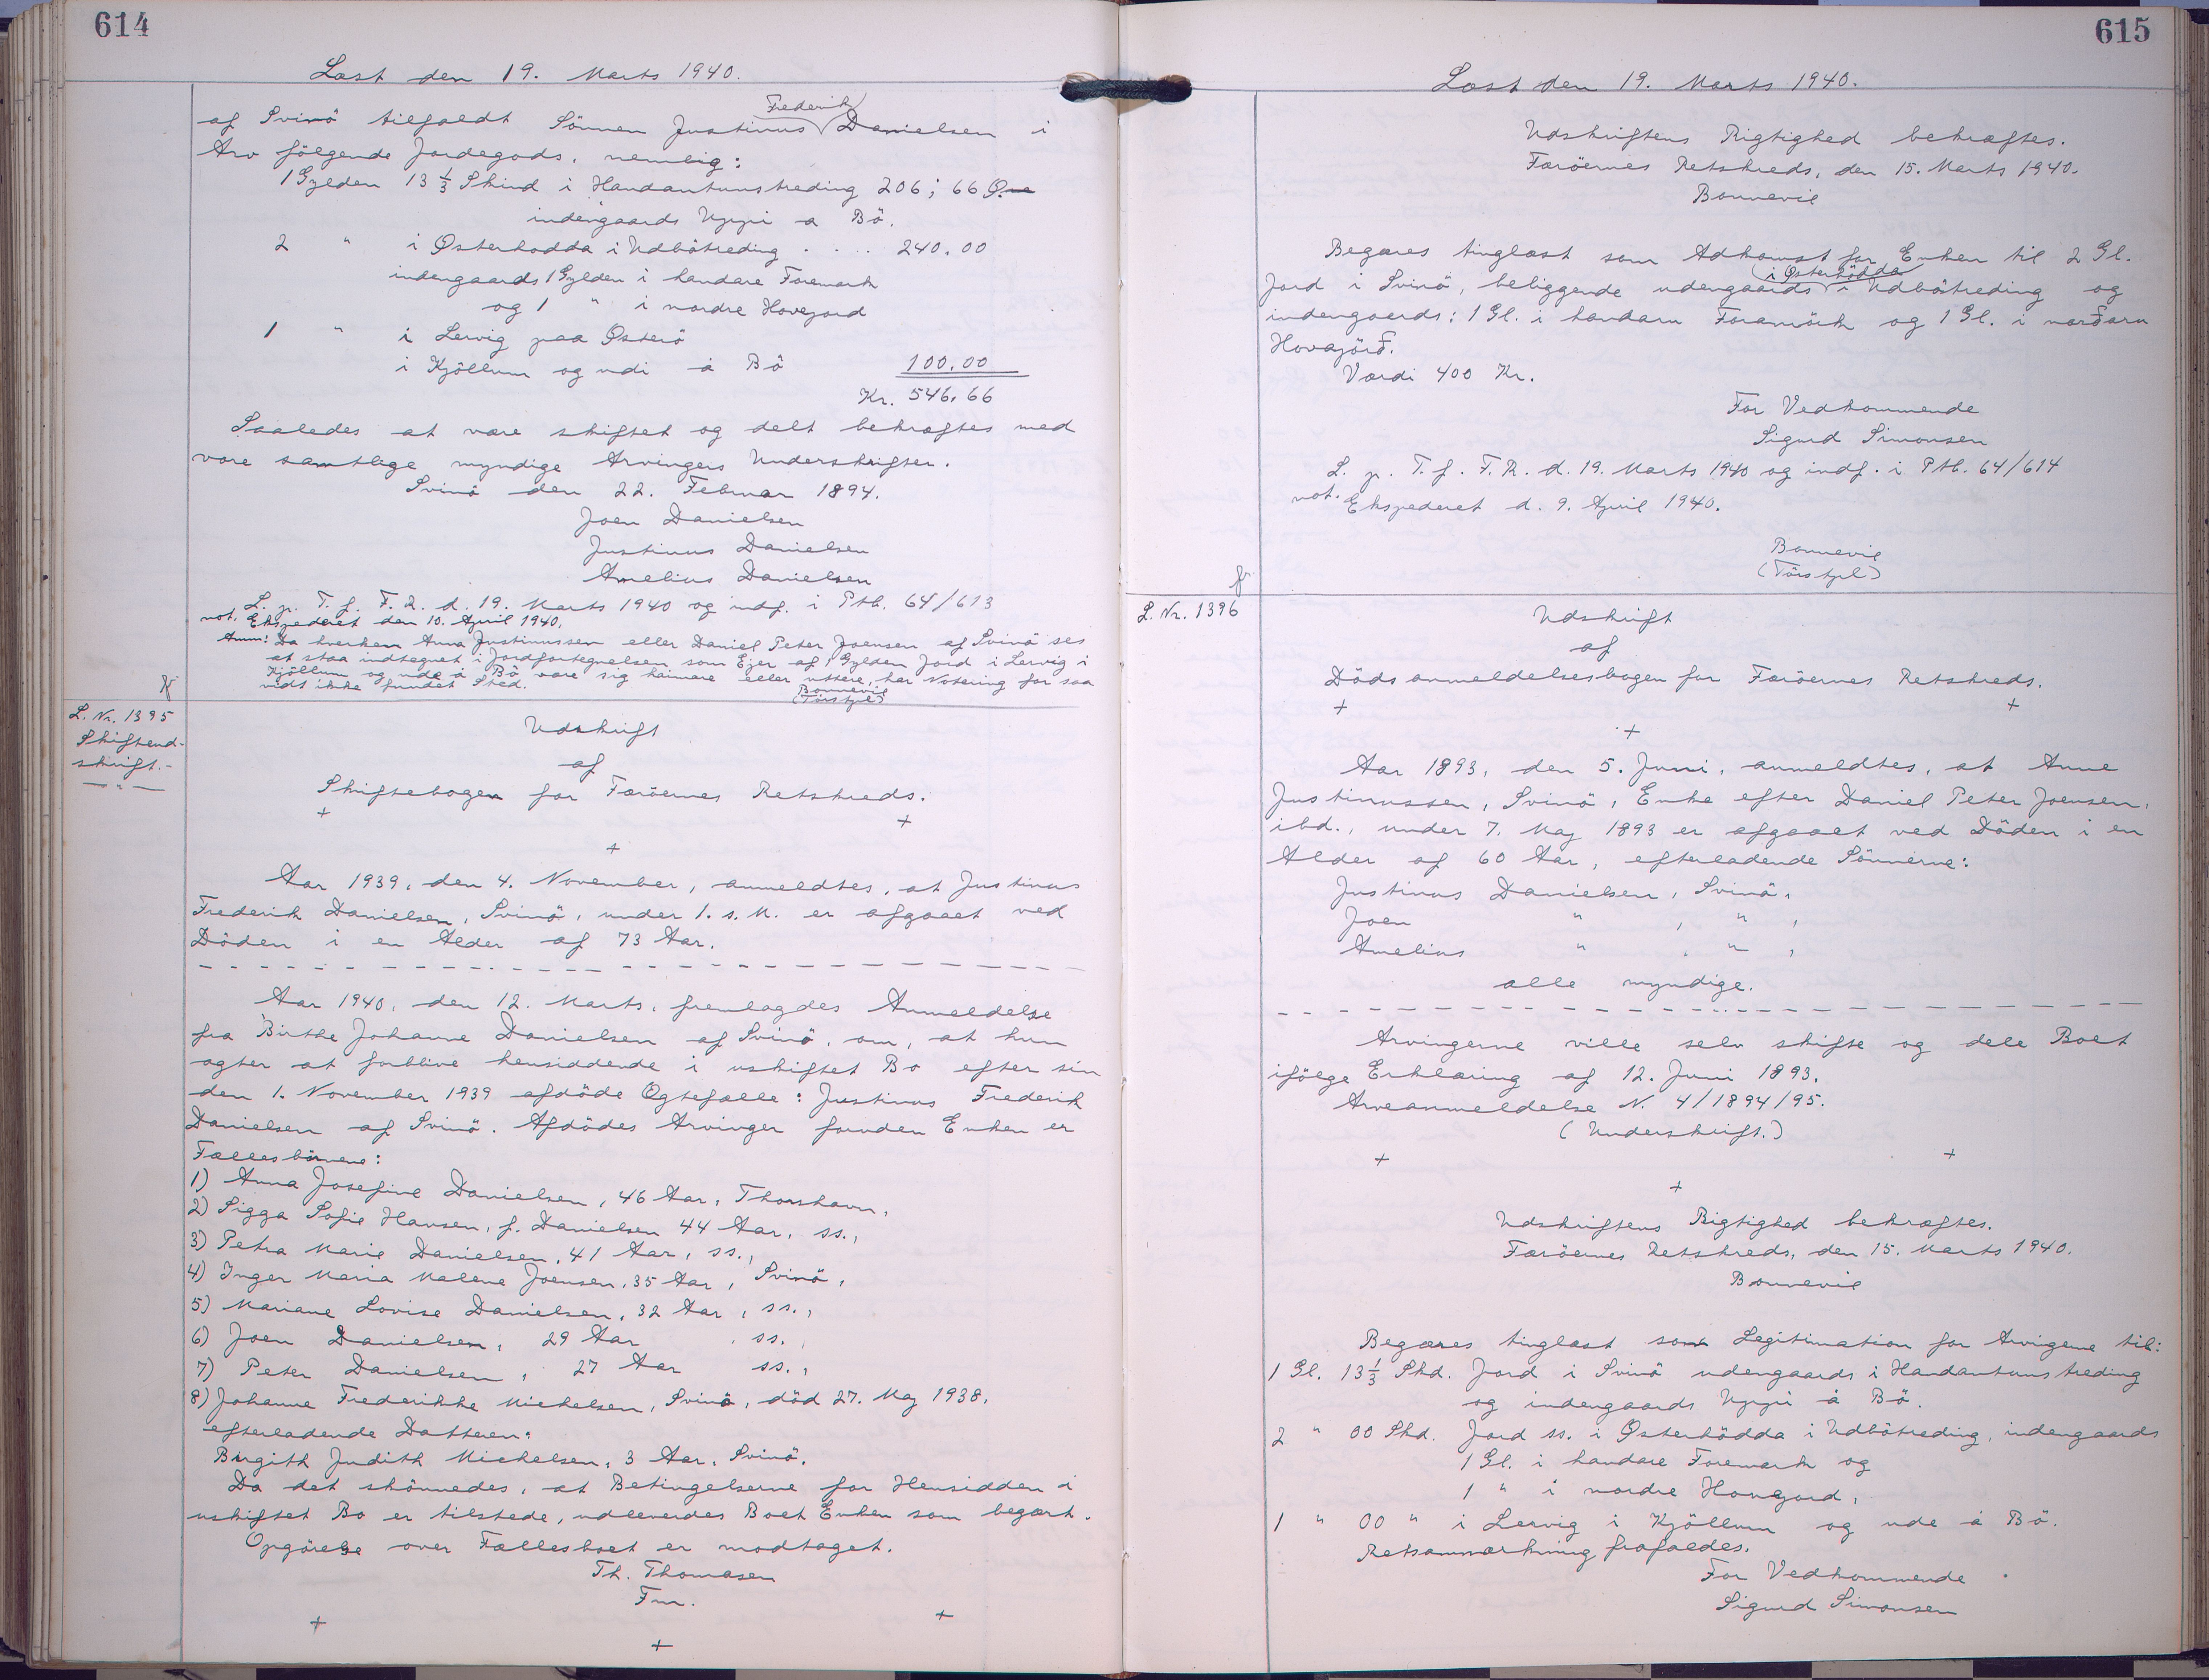 614
Læst den 19. Marts 1940.
af Svinö tilfaldt Sönnen Justinus Frederik Danielsen i
Arv fölgende Jordegods, nemlig:
1 Gylden 13 1/3 Skind i Handantunstreding 206; 66 Øre
indengaards Uppi a Bö.
2 " i Østerhodda i Udbötreding . . . . 240.00
indengaards 1 Gylden i handare Foremark
og 1 " i nordre Hovegord
1 " i Lervig paa Österö
i Kjöllum og udi á Bö 100.00
Kr. 546.66
Saaledes at være skiftet og delt bekræftes med
vore samtlige myndige Arvingers Underskrifter.
Svinö den 22. Februar 1894.
Joen Danielsen
Justinus Danielsen
Amelius Danielsen
L. p. T. f. F. R. d. 19. Marts 1940 og indf. i Ptb. 64/613
not. Ekspederet den 10. April 1940.
Anm: Da hverken Anna Justinussen eller Daniel Peter Joensen af Svinö ses
at staa indtegnet i Jordfortegnelsen som Ejer af 1 Gylden Jord i Lervig i
Kjöllum og ude á Bö være sig haimare eller uttere, har Notering for saa
vidt ikke fundet Sted.
Bonnevie
(Törstpl)
L. Nr. 1395
Skifteud-
skrift.-
— " —
Udskrift
af
Skiftebogen for Færöernes Retskreds.
+ +
+
Aar 1939, den 4. November, anmeldtes, at Justinus
Frederik Danielsen, Svinö, under 1. s. M. er afgaaet ved
Döden i en Alder af 73 Aar.
Aar 1940, den 12. Marts, fremlagdes Anmeldelse
fra Birthe Johanne Danielsen af Svinö, om, at hun
agter at forblive hensiddende i uskiftet Bo efter sin
den 1. November 1939 afdöde Ægtefælle: Justinus Frederik
Danielsen af Svinö. Afdödes Arvinger foruden Enken er
Fællesbörnene:
1) Anna Josefine Danielsen, 46 Aar, Thorshavn,
2) Sigga Sofie Hansen, f. Danielsen 44 Aar, ss.,
3) Petra Marie Danielsen, 41 Aar, ss.,
4) Inger Maria Malene Joensen, 35 Aar, Svinö,
5) Mariane Lovise Danielsen, 32 Aar, ss.,
6) Joen Danielsen, 29 Aar, ss.
7) Peter Danielsen, 27 Aar ss.,
8) Johanne Frederikke Michelsen, Svinö, död 27. Maj 1938,
efterladende Datteren:
Birgith Judith Michelsen, 3 Aar, Svinö.
Da det skönnedes, at Betingelserne for Hensidden i
uskiftet Bo er tilstede, udleveredes Boet Enken som begært.
Opgörelse over Fællesboet er modtaget.
Th. Thomasen
Fm.
+ +
+
615
Læst den 19. Marts 1940.
Udskriftens Rigtighed bekræftes.
Færöernes Retskreds, den 15. Marts 1940.
Bonnevie
Begæres tinglæst som Adkomst for Enken til 2 Gl.
Jord i Svinö, beliggende udengaards i Østerhödda i Udbötreding og
indengaards: 1 Gl. i handaru Foramörk og 1 Gl. i norðaru
Hovagörð.
Værdi 400 Kr.
For Vedkommende
Sigurd Simonsen
L. p. T. f. F. R. d. 19. Marts 1940 og indf. i Ptb. 64/614
not. Ekspederet d. 9. April 1940.
Bonnevie
(Törstpl)
L. Nr. 1396
Udskrift
af
Dödsanmeldelsesbogen for Færöernes Retskreds.
+ +
+
Aar 1893, den 5. Juni, anmeldtes, at Anne
Justinussen, Svinö, Enke efter Daniel Peter Joensen,
ibd., under 7. Maj 1893 er afgaaet ved Döden i en
Alder af 60 Aar, efterladende Sönnerne:
Justinus Danielsen, Svinö,
Joen " , " ,
Amelius " , " ,
alle myndige.
Arvingerne ville selv skifte og dele Boet
ifölge Erklæring af 12. Juni 1893.
Arveanmeldelse N. 4/1894/95.
(Underskrift.)
+ +
+
Udskriftens Rigtighed bekræftes.
Færöernes Retskreds, den 15. Marts 1940.
Bonnevie
Begæres tinglæst som Legitimation for Arvigene til:
1 Gl. 13 1/3 Skd. Jord i Svinö udengaards i Handantunstreding
og indengaards Uppi á Bö.
2 " 00 Skd. Jord ss. i Østerhödda i Udbötreding, indengaards
1 Gl. i handare Foremark og
1 " i nordre Hovgord,
1 " 00 " i Lervig i Kjöllum og ude á Bö.
Retsanmærkning frafaldes.
For Vedkommende
Sigurd Simonsen